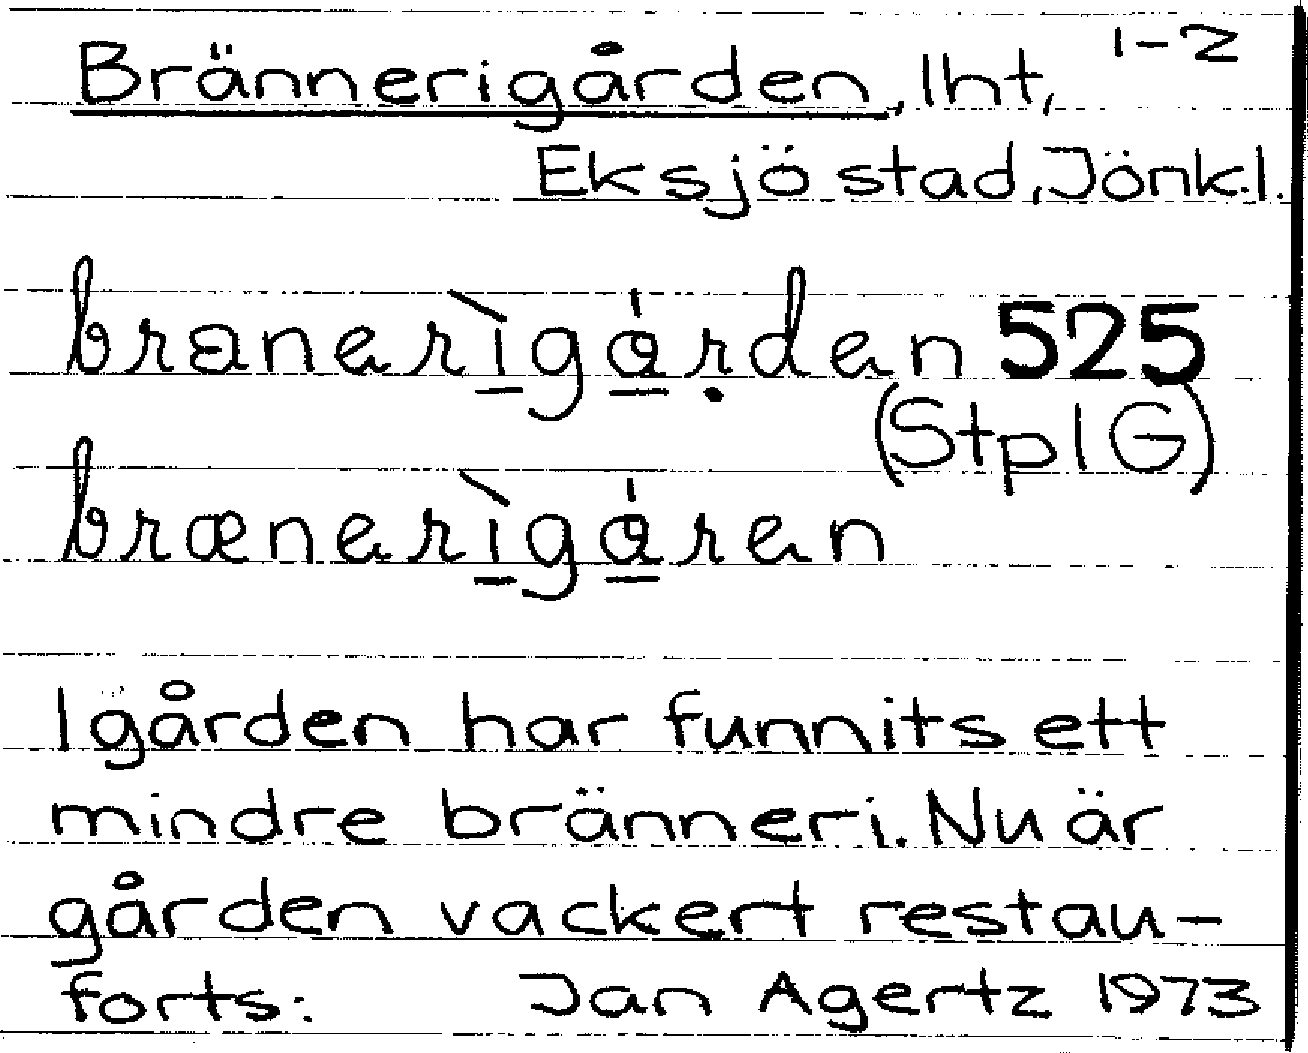 Brännerigården, lht, 1-2
Eksjö stad, Jönk.l.
branerìgȧ̱ṛden 525
(Stpl G)
brænerìgȧ̱ren
I gården har funnits ett
mindre bränneri. Nu är
gården vackert restau-
forts: Jan Agertz 1973